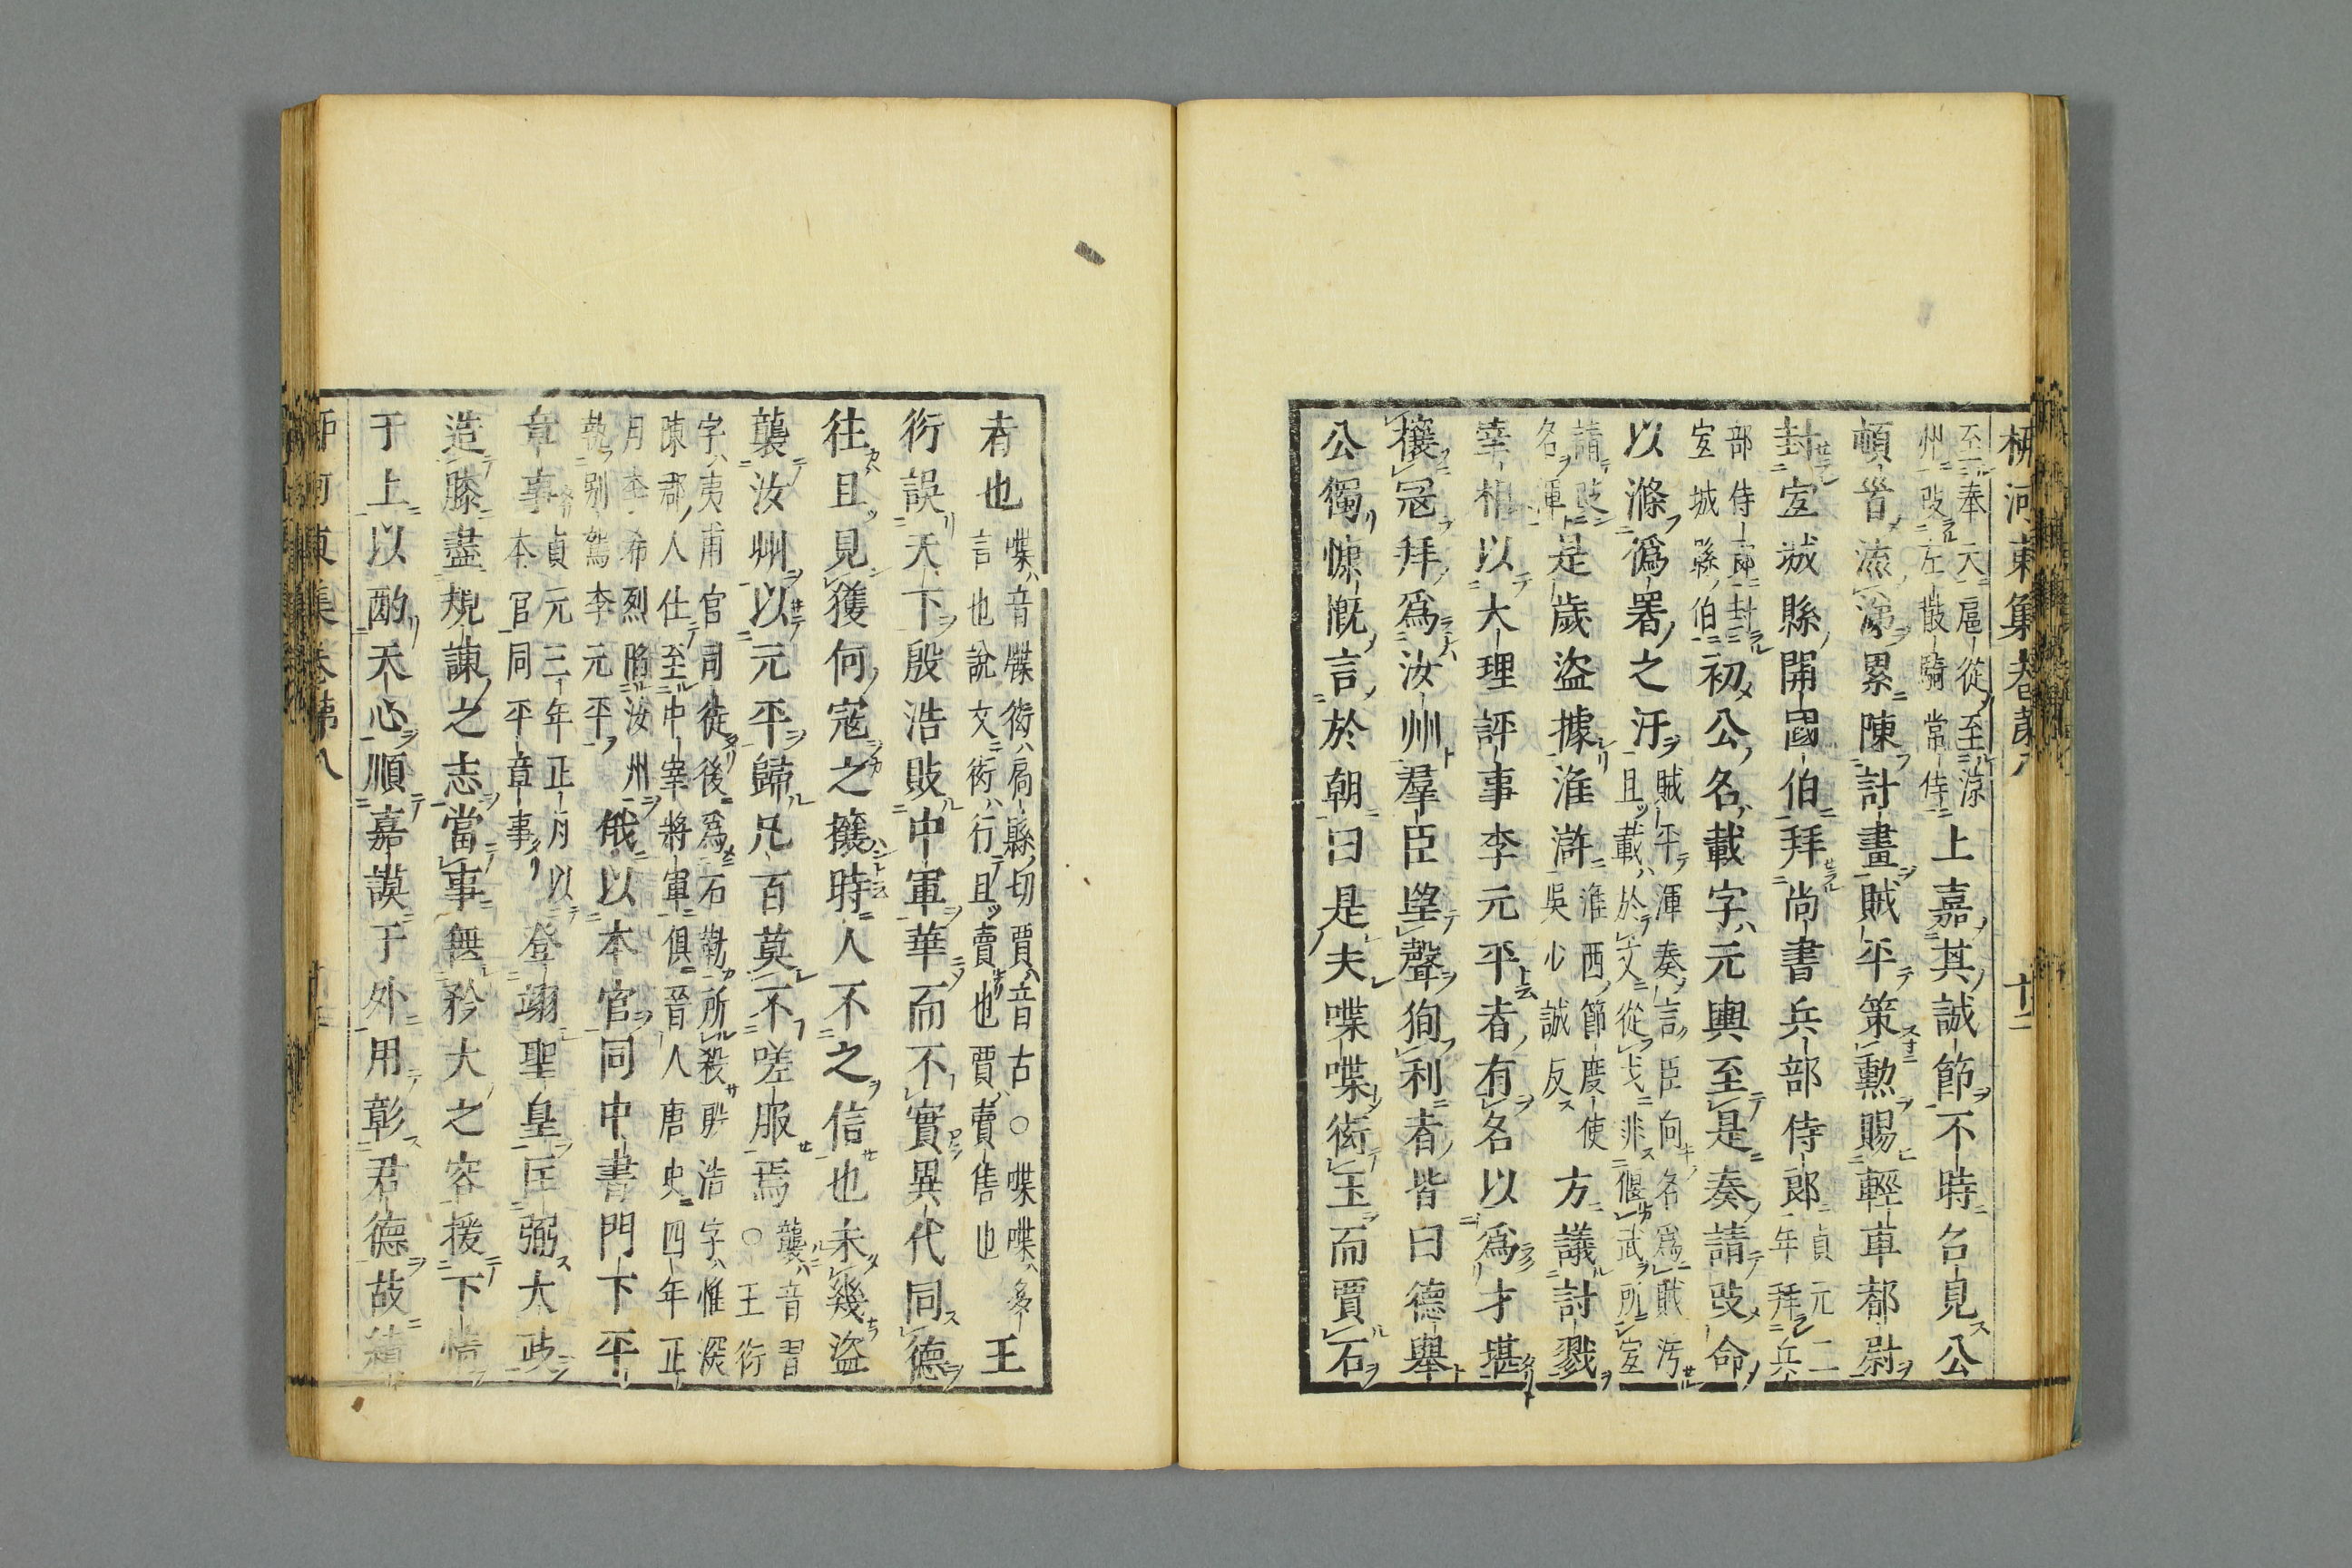 柳河東集卷第八 十二
至奉天扈從至涼州改左散騎常侍上嘉其誠節不時召見公
頓首流涕累陳計畫賊平策勲賜輕車都尉
封宜城縣開國伯拜尚書兵部侍郎貞元二年拜兵
部侍郎封宜城縣伯初公名載字元輿至是奏請改命
以滌僞署之汙賊平渾奏言臣向名爲賊汚且載於文從戈非偃武所宜
請改名渾是歲盜據淮滸淮西節度使吳少誠反方議討戮
宰相以大理評事李元平者有名以爲才堪
攘寇拜爲汝州羣臣望聲徇利者皆曰德舉
公獨慷慨言於朝曰是夫喋喋衒玉而賈石
者也喋音牒衒扃縣切賈音古○喋喋多言也說文衒行且賣也賈賣售也王
衍誤天下殷浩敗中軍華而不實異代同德
往且見獲何寇之攘時人不之信也未幾盜
襲汝州以元平歸凡百莫不嗟服焉襲音習○王衍
字夷甫官司徒後爲石勒所殺殷浩字惟深陳郡人仕至中宰將軍俱晉人唐史四年正
月李希烈陷汝州執別駕李元平俄以本官同中書門下平
章事貞元三年正月以本官同平章事登翊聖皇匡弼大政
造膝盡規諫之志當事無矜大之容援下情
于上以酌天心順嘉謨于外用彰君德故績
柳河東集卷第八